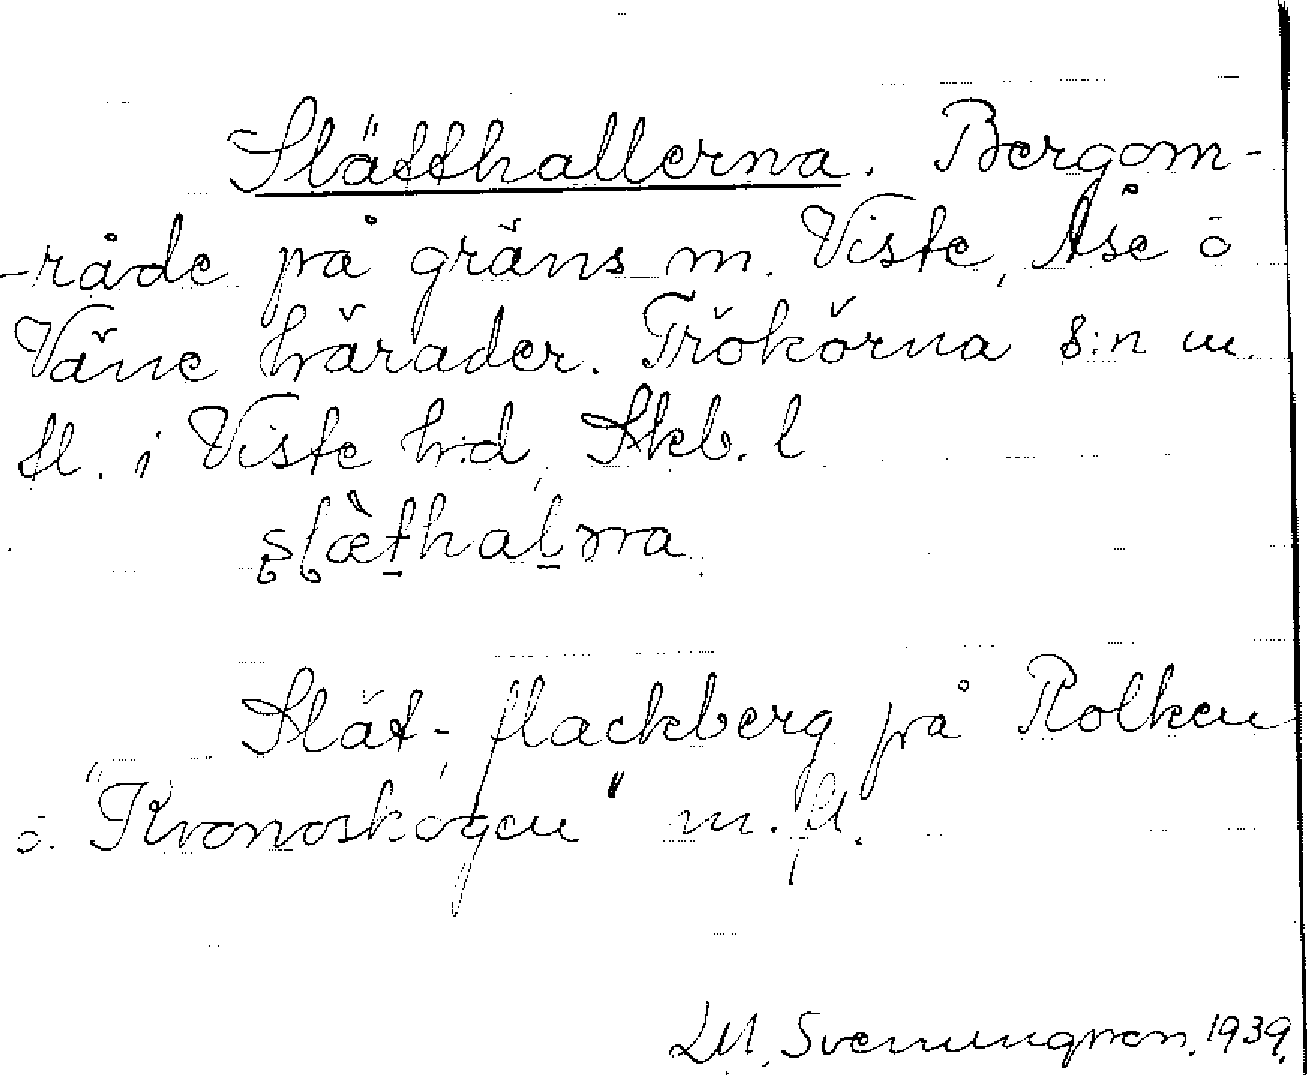 Slätthallerna. Bergom-
-råde på gräns m. Viste, Åse o
Väne härader. Trökörna s:n m
fl. i Viste h:d, Skb. l
slæ̀thaḻɿna
Slät-, flackberg på Kolken
o. "Kronoskogen" m. fl.
LM. Svenungsson. 1939.